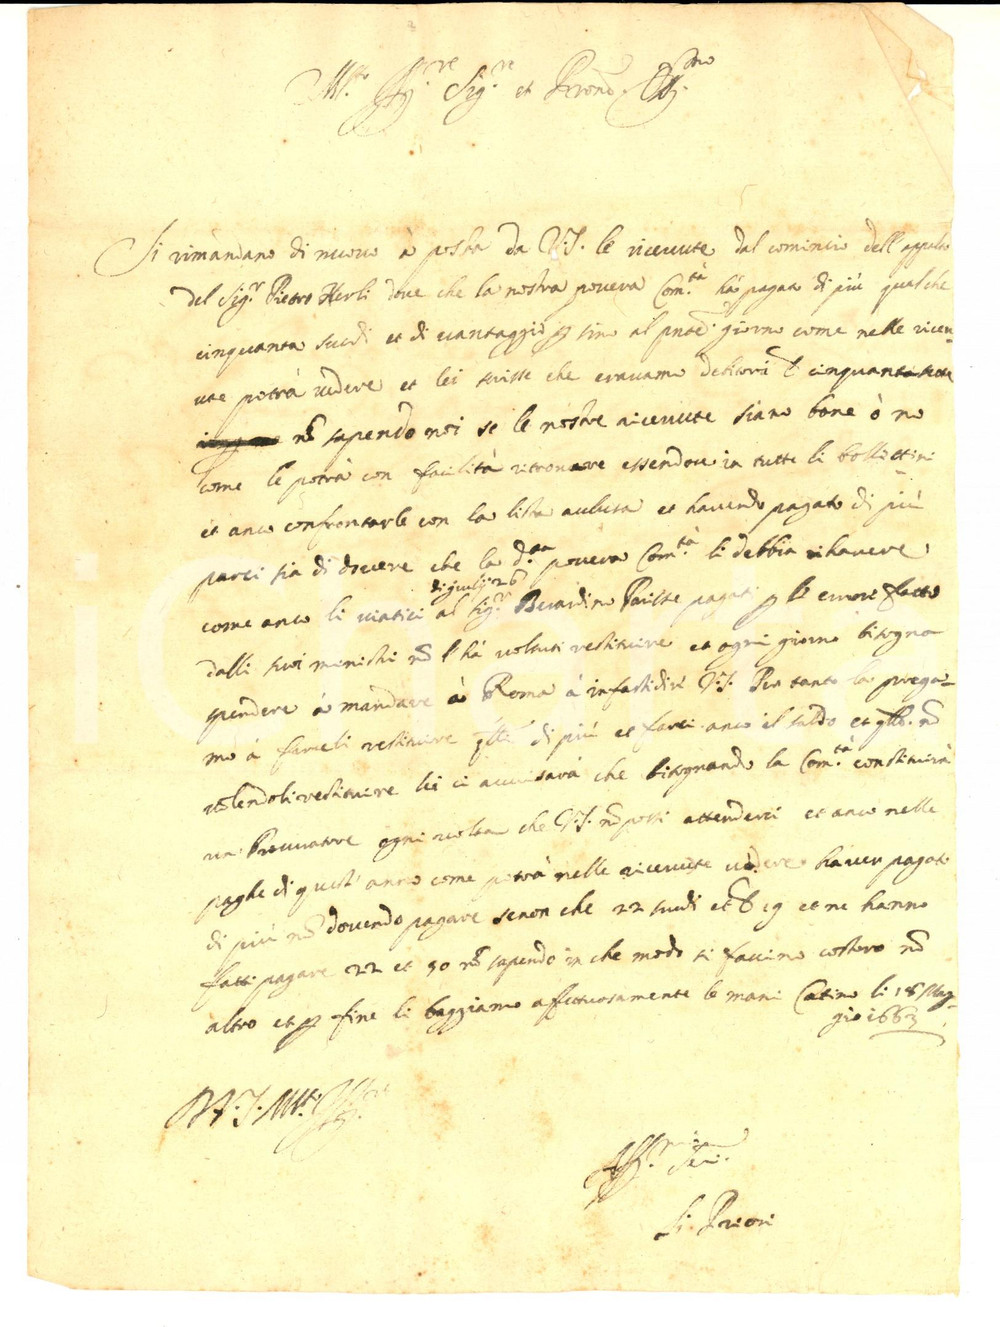 Sig.re et Pron
Si rimandano di nuovo à posta da V.S. le ricevute dal comincio dell appalto
del Sig.r Pietro Herli dove che la nostra povera Com.tà hà pagato di più qualche
cinquanta scudi et di vantaggio p sino al pnte giorno come nelle ricev-
ute potrà vedere et lei scrisse che eravamo debitori cinquantasette
nō sapendo noi se le nostre ricevute siano bone ò no
come le potrà con facilità ritrovare essendovi in tutte li bollettini
et anco confrontarle con la lista et havendo pagato di più
parci sia di dovere che la d.a povera Com.tà li debbia rihavere
di giulij 26
come anco li viatici al Sig.r Berardino Parisse pagati p le errori fatto
dalli suoi ministri nō l'hà voluti restituire et ogni giorno bisogna
spendere à mandare à Roma à infastidire V.S. Per tanto la prega-
mo à farceli restituire di più et farci anco il saldo et nō
volendoli restituire lei ci avvisarà che bisognando la Com.tà constituirà
un Procuratore ogni volta che V.S. nō possi attenderci et anco nelle
paghe di quest'anno come potrà nelle ricevute vedere haver pagato
di più nō dovendo pagare senon che 22 scudi et 19 et ne hanno
fatti pagare 22 et 50 nō sapendo in che modo si faccino costoro nō
altro et p fine li baggiamo affettuosamente le mani Catino li 18 Mag-
gio 1663
D V.S. Mto
Aff.mi Ser.i
Li Priori